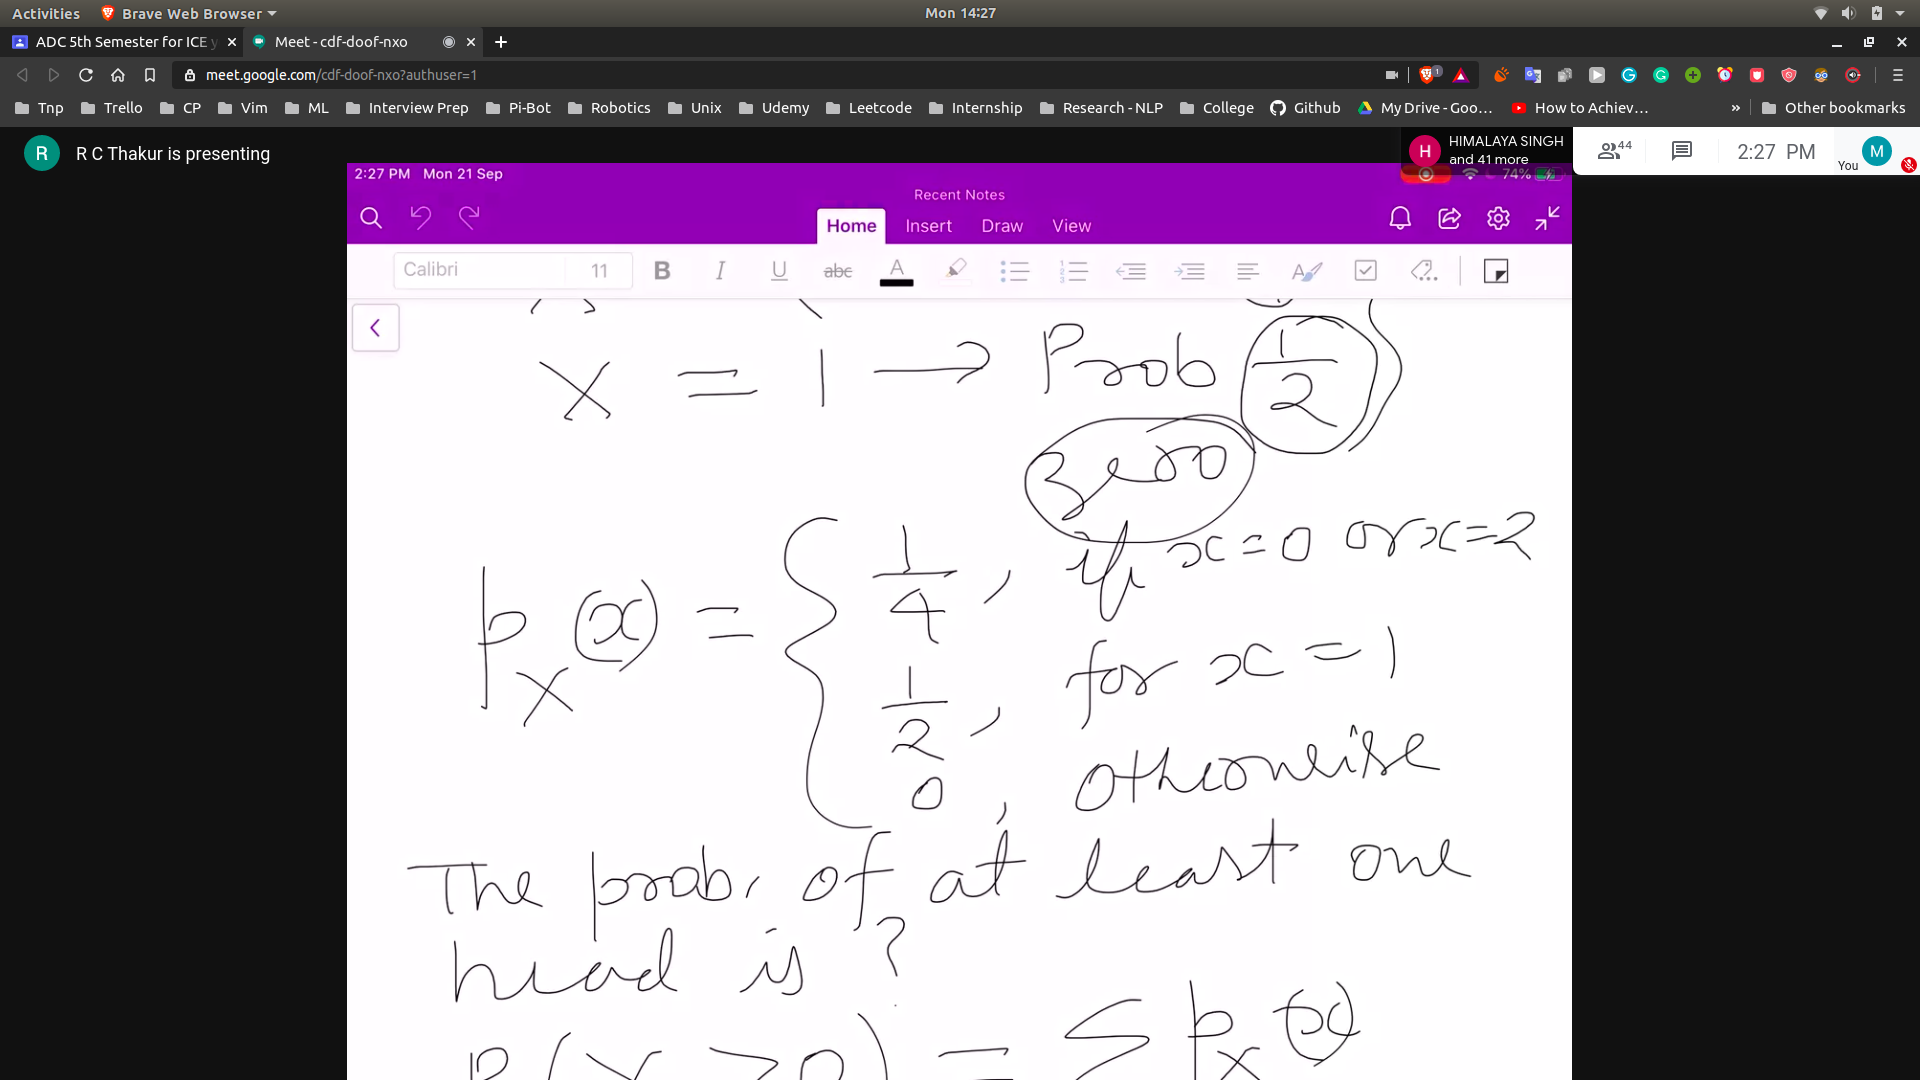 Activities Brave Web Browser Mon 14:27
ADC 5th Semester for ICE Meet - cdf-doof-nxo
meet.google.com/cdf-doof-nxo?authuser=1
Tnp Trello CP Vim ML Interview Prep Pi-Bot Robotics Unix Udemy Leetcode Internship Research - NLP College Github My Drive - Goo... How to Achiev... » Other bookmarks
R R C Thakur is presenting H HIMALAYA SINGH and 41 more 44 2:27 PM You M
2:27 PM Mon 21 Sep 74%
Recent Notes
Home Insert Draw View
Calibri 11 B I U abc A
X = 1 → Prob 1/2
zero
p_X(x) = { 1/4, if x=0 or x=2
1/2, for x=1
0, otherwise
The prob. of at least one
head is?
P(X>0) = Σ p_X(x)